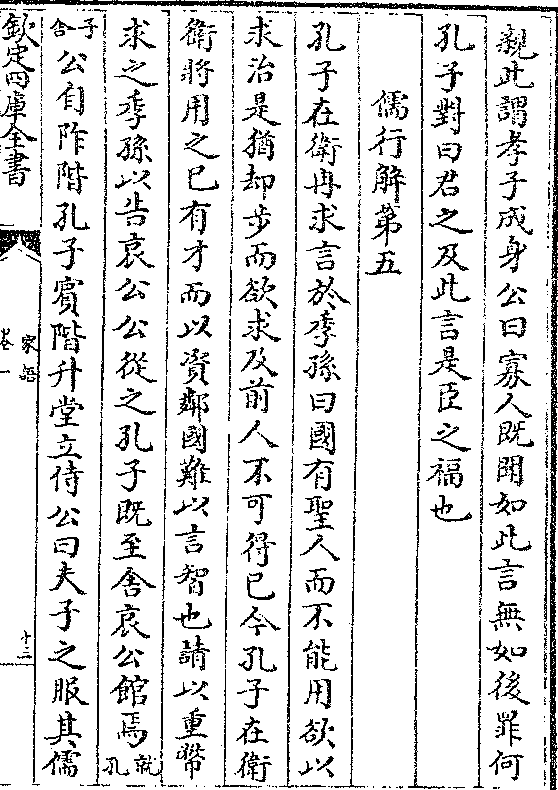 親此謂孝子成身公曰寡人既聞如此言無如後罪何
孔子對曰君之及此言是臣之福也
儒行解第五
孔子在衛冉求言於季孫曰國有聖人而不能用欲以
求治是猶却步而欲求及前人不可得已今孔子在衛
衛將用之已有才而以資鄰國難以言智也請以重幣
求之季孫以告哀公公從之孔子既至舍哀公館焉就孔
子舍公自阼階孔子賓階升堂立侍公曰夫子之服其儒
欽定四庫全書
家語
卷一
十三